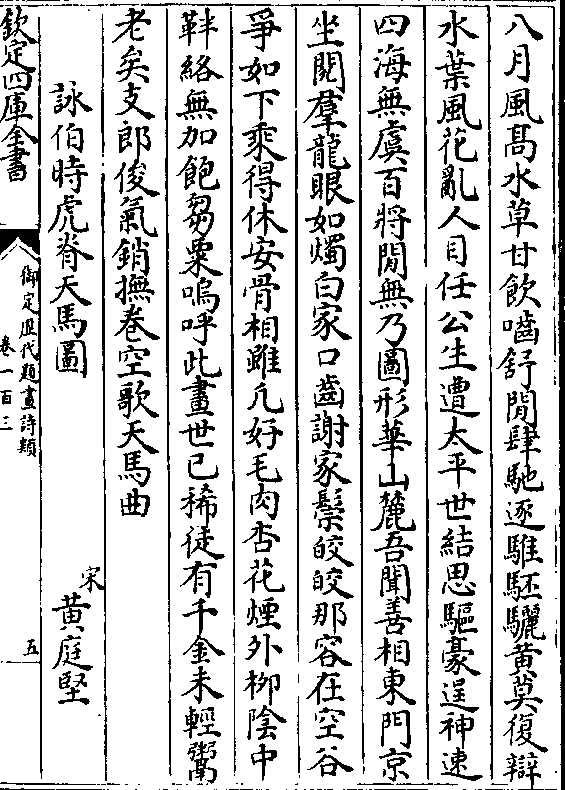 八月風髙水草甘飲嚙舒閒肆馳逐騅駓驪黄莫復辯
水葉風花亂人目任公生遭太平世結思驅豪逞神速
四海無虞百將閒無乃圖形華山麓吾聞善相東門京
坐閱羣龍眼如燭白家口齒謝家鬃皎皎那容在空谷
爭如下乘得休安骨相雖凡好毛肉杏花煙外栁陰中
靽絡無加飽芻粟嗚呼此畫世已稀徒有千金未輕鬻
老矣支郎俊氣銷撫卷空歌天馬曲
詠伯時虎脊天馬圖
宋
黄庭堅
欽定四庫全書
御定歴代題畫詩類
卷一百三
五